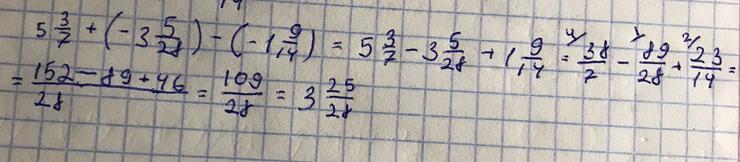 5 3/7 + (-3 5/28) - (-1 9/14) = 5 3/7 - 3 5/28 + 1 9/14 = ⁴⁄38/7 - ¹⁄89/28 + ²⁄23/14 =
= (152 - 89 + 46)/28 = 109/28 = 3 25/28